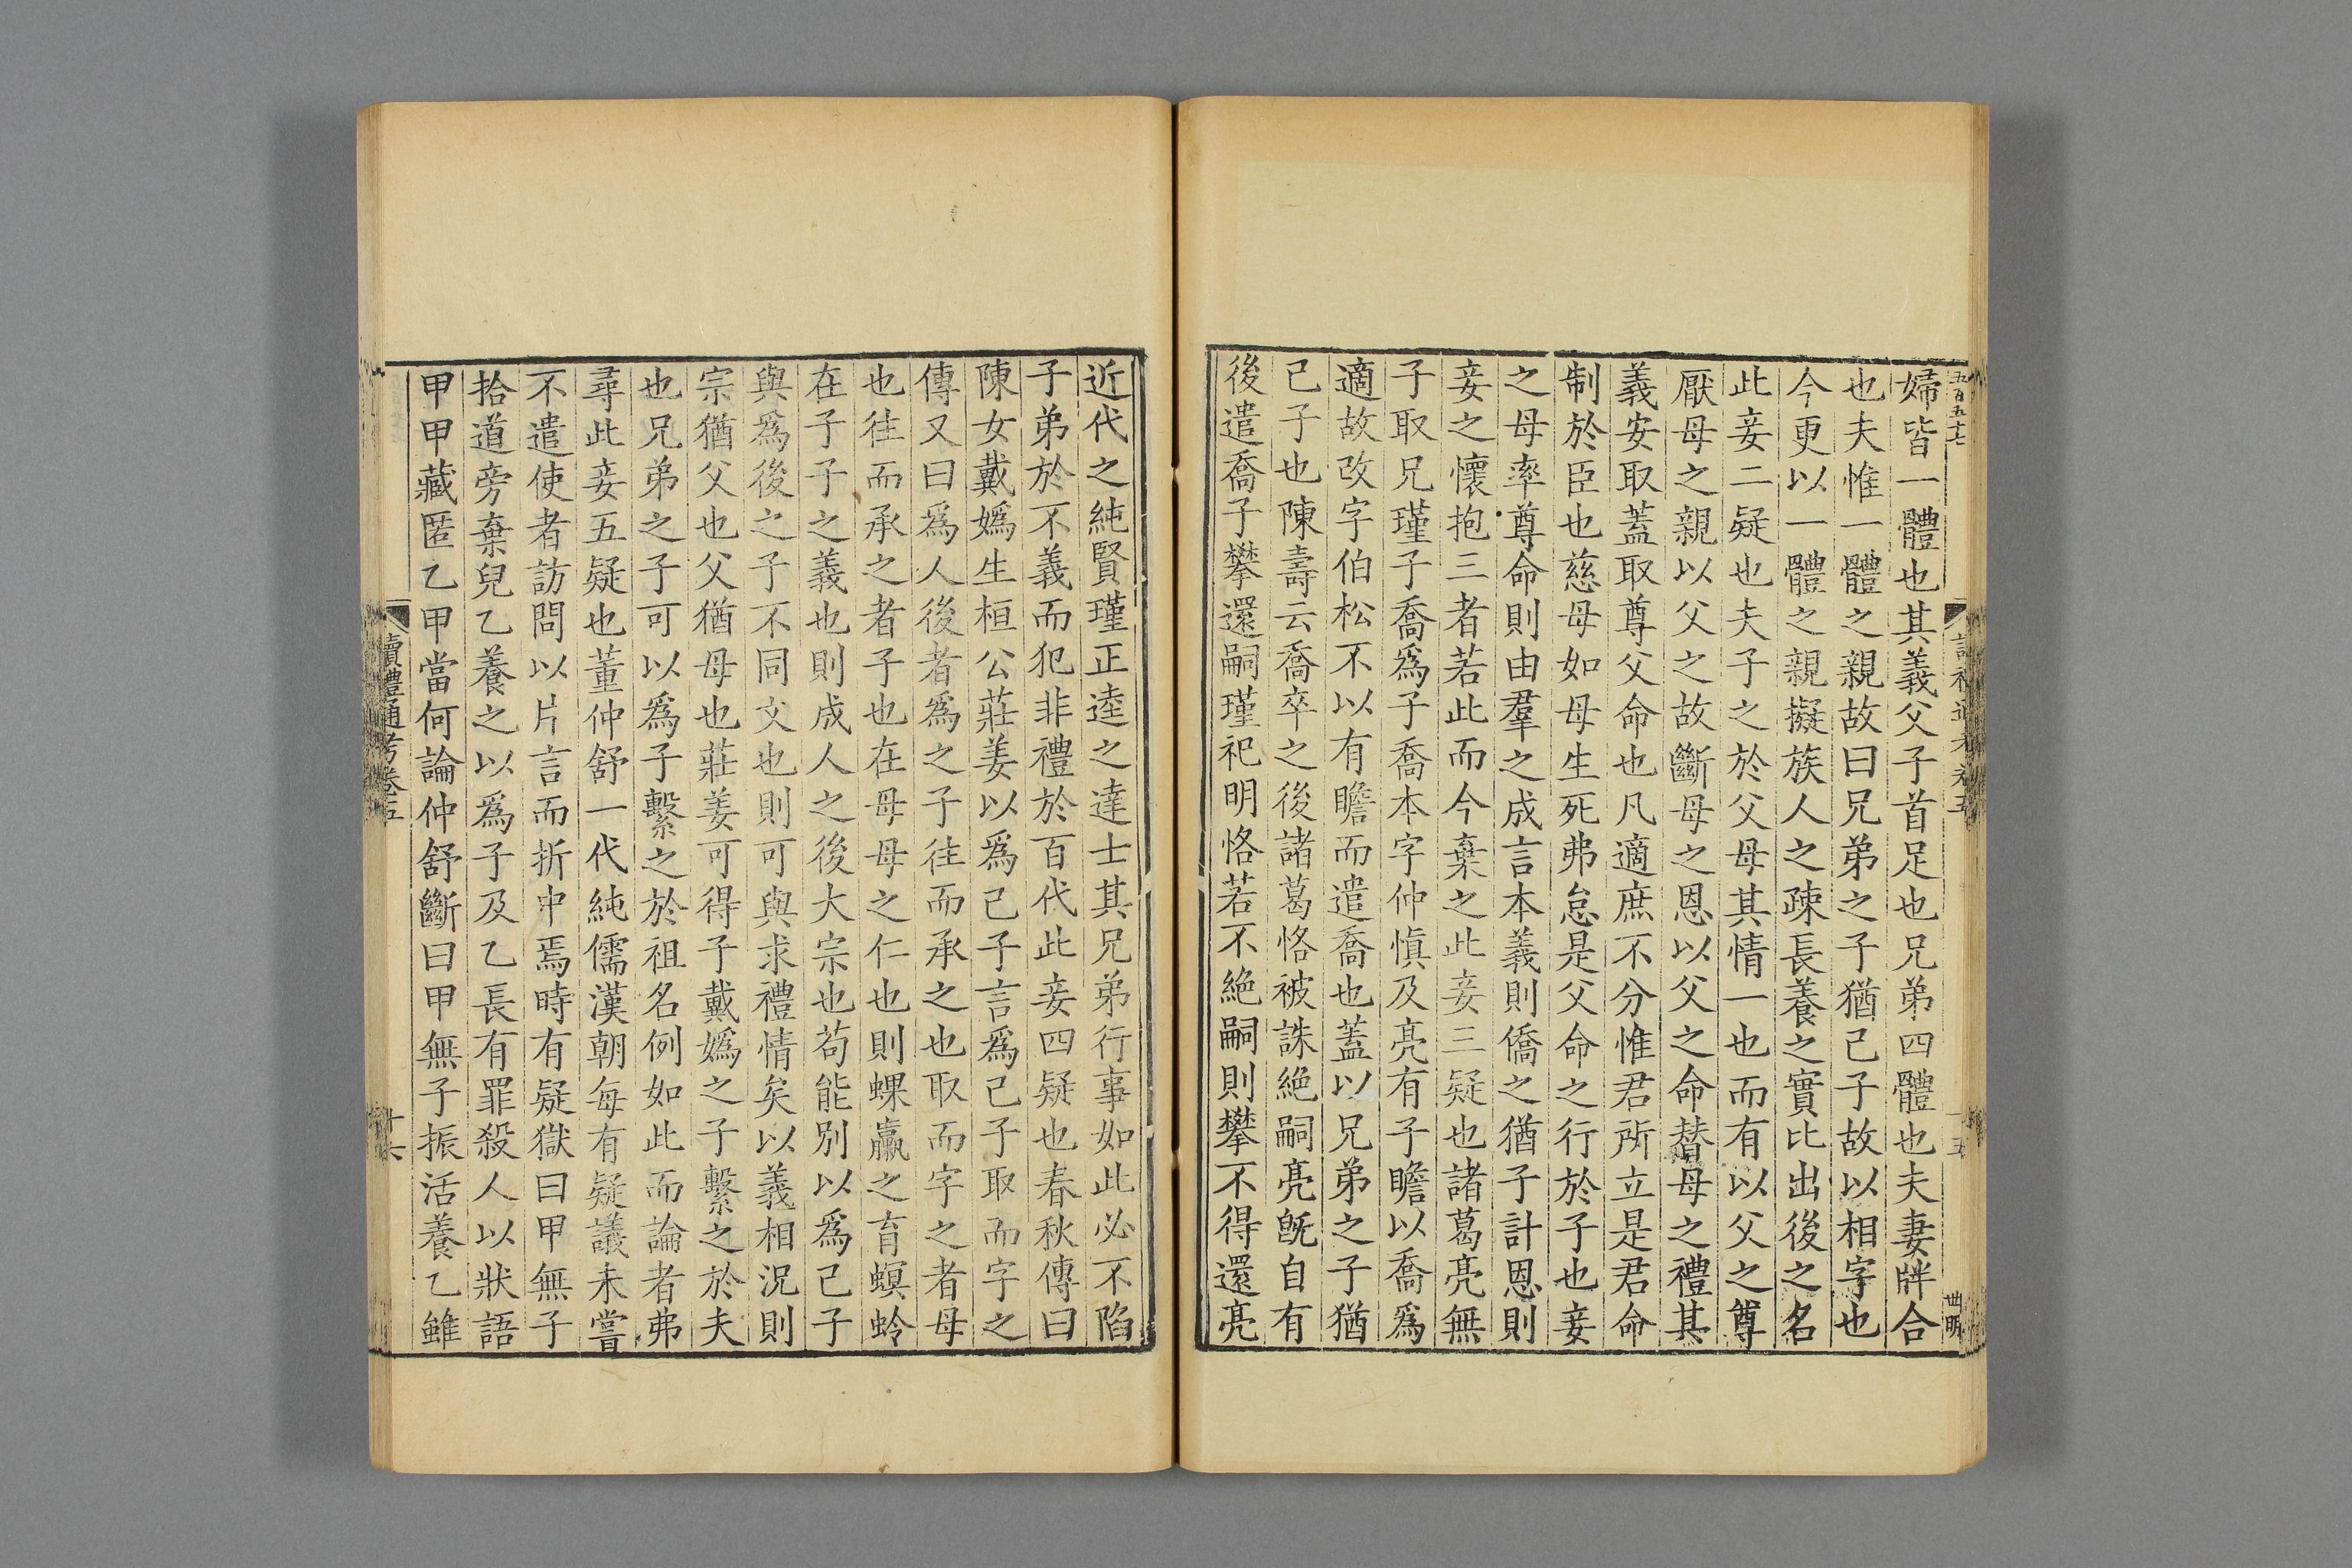 婦皆一體也其義父子首足也兄弟四體也夫妻牉合
也夫惟一體之親故曰兄弟之子猶己子故以相字也
今更以一體之親擬族人之疎長養之實比出後之名
此妾二疑也夫子之於父母其情一也而有以父之尊
厭母之親以父之故斷母之恩以父之命替母之禮其
義安取蓋取尊父命也凡適庶不分惟君所立是君命
制於臣也慈母如母生死弗怠是父命之行於子也妾
之母率尊命則由羣之成言本義則僑之猶子計恩則
妾之懷抱三者若此而今棄之此妾三疑也諸葛亮無
子取兄瑾子喬爲子喬本字仲慎及亮有子瞻以喬爲
適故改字伯松不以有瞻而遣喬也蓋以兄弟之子猶
己子也陳壽云喬卒之後諸葛恪被誅絶嗣亮旣自有
後遣喬子攀還嗣瑾祀明恪若不絶嗣則攀不得還亮
近代之純賢瑾正逵之達士其兄弟行事如此必不陷
子弟於不義而犯非禮於百代此妾四疑也春秋傳曰
陳女戴嬀生桓公莊姜以爲己子言爲己子取而字之
傳又曰爲人後者爲之子往而承之也取而字之者母
也往而承之者子也在母母之仁也則蜾蠃之育螟蛉
在子子之義也則成人之後大宗也苟能別以爲己子
與爲後之子不同文也則可與求禮情矣以義相況則
宗猶父也父猶母也莊姜可得子戴嬀之子繫之於夫
也兄弟之子可以爲子繫之於祖名例如此而論者弗
尋此妾五疑也董仲舒一代純儒漢朝每有疑議未嘗
不遣使者訪問以片言而折中焉時有疑獄曰甲無子
拾道旁棄兒乙養之以爲子及乙長有罪殺人以狀語
甲甲藏匿乙甲當何論仲舒斷曰甲無子振活養乙雖
讀禮通考卷五
十六